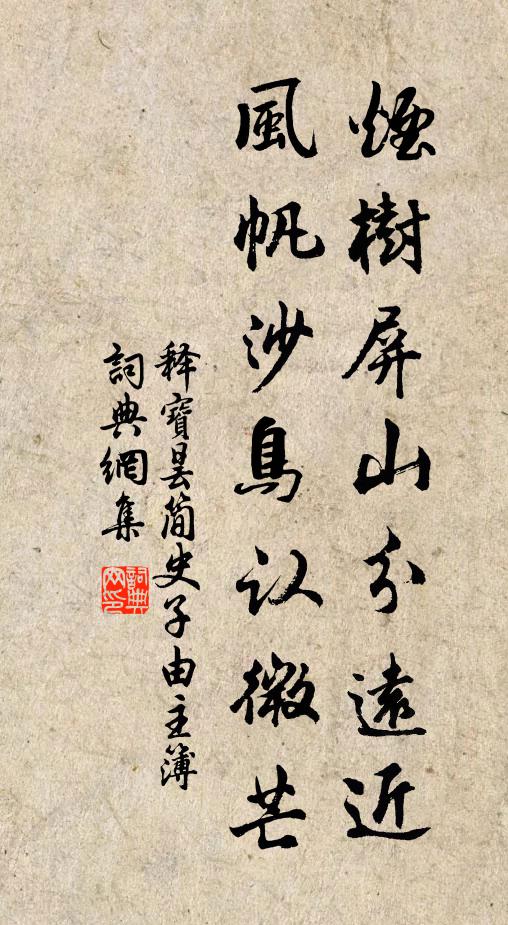 煙樹屏山分遠近
風帆沙鳥认微芒
释寶曇简史子由主簿
詞典網集
詞典網印